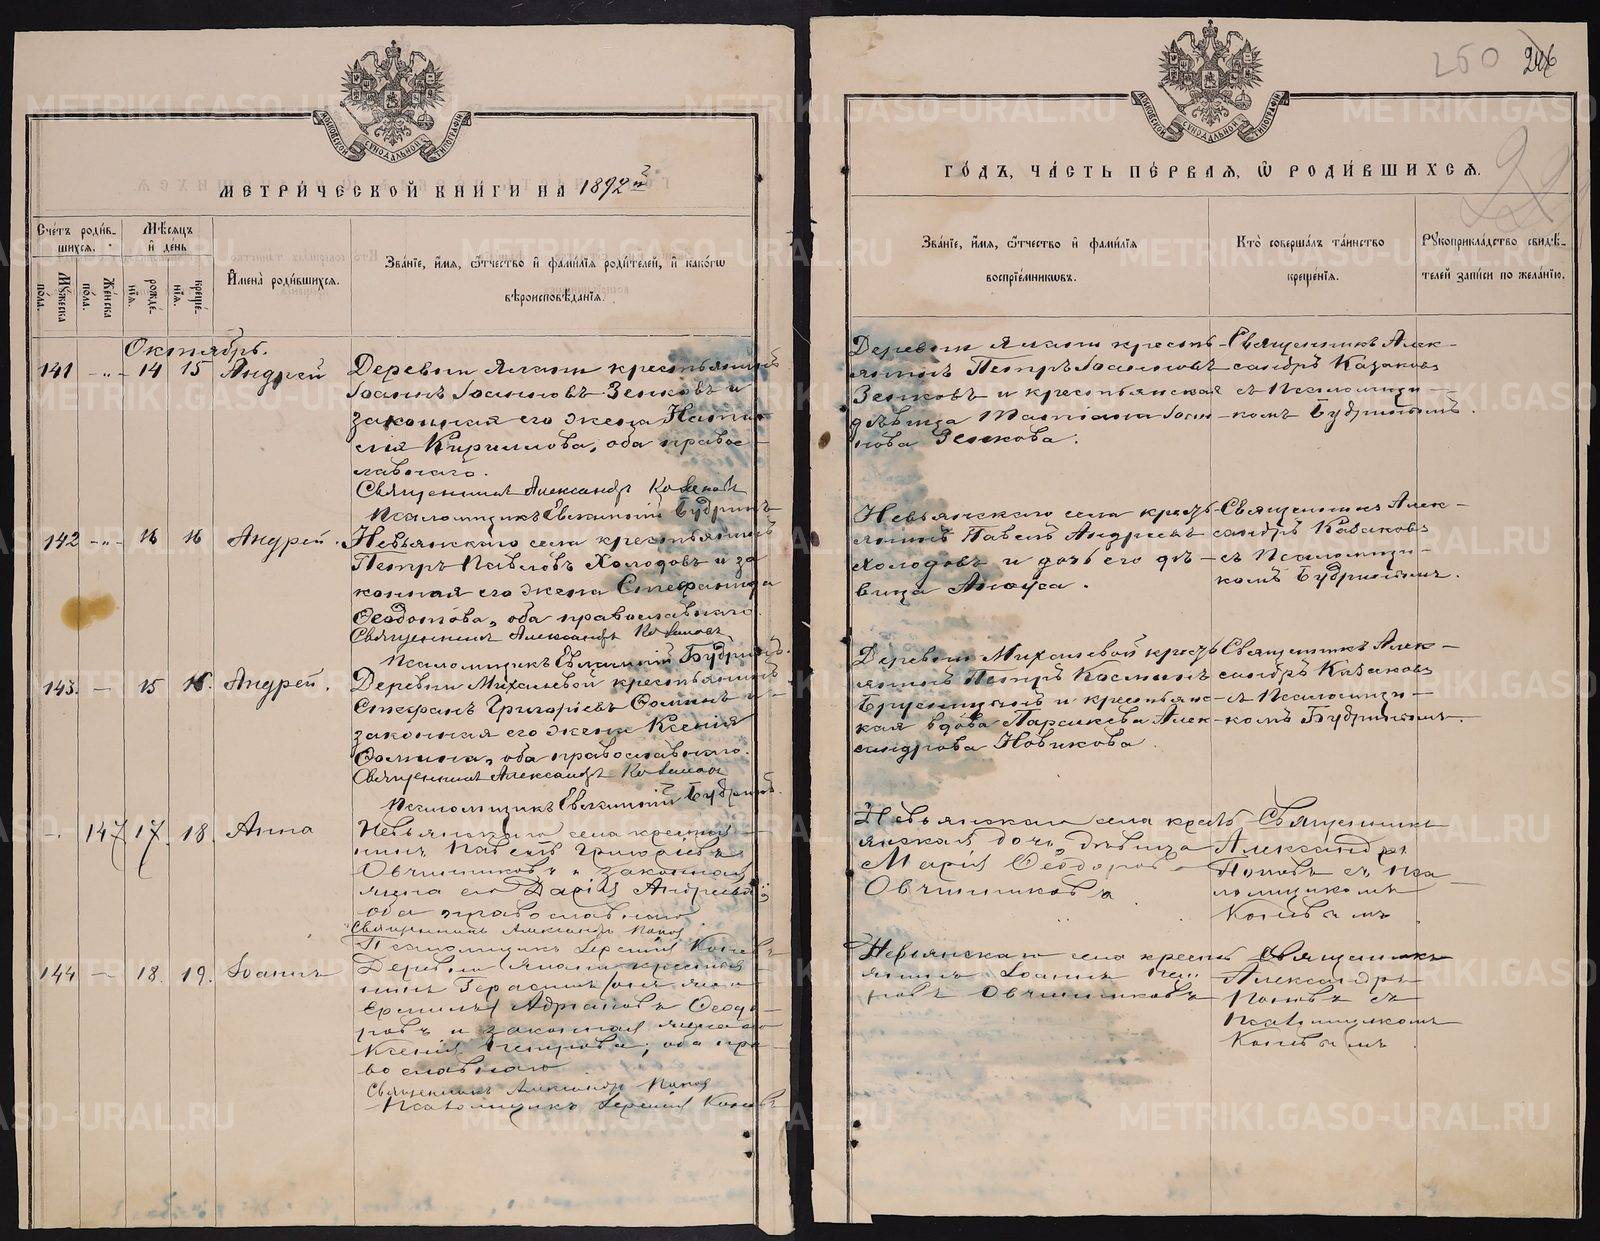 МОСКОВСКОЙ СѴНОДАЛЬНОЙ ТИПОГРАФІИ
МЕТРИ́ЧЕСКОЙ КНИ́ГИ НА 1892й
Сче́тъ роди́в-
шихся.
Мѣ́сяцъ
и҆ де́нь
Мꙋ́жеска по́ла.
Же́нска по́ла.
рожде́-
нїѧ.
креще́-
нїѧ.
И҆мена̀ роди́вшихсѧ.
Зва́нїе, и҆́мѧ, ѻ҆́тчество и҆ фами́лїѧ роди́телей, и҆ како́гѡ
вѣроисповѣ́данїѧ.
Октябрь.
141 - „ - 14 15 Андрей
Деревни Ялани крестьянинъ
Іоаннъ Іоанновъ Зенковъ и
законная его жена
Кириллова, оба право-
славнаго.
Священникъ Александръ Казаковъ
Псаломщикъ Евлампій Будринъ
142 - „ - 16 16 Андрей.
Невьянскаго села крестьянинъ
Петръ Павловъ Холодовъ и за
конная его жена Стефанида
Ѳеодотова, оба православнаго.
Священникъ Александръ Казаковъ
Псаломщикъ Евлампій Будринъ.
143. - 15 16. Андрей.
Деревни Михалевой крестьянинъ
Стефанъ Григорьевъ Ѳоминъ и
законная его жена Ксенія
Ѳомина, оба православнаго.
Священникъ Александръ Казаковъ
Псаломщикъ Евлампій Будринъ.
-. 147 17. 18. Анна
Невьянскаго села крестья-
нинъ Павелъ Григорьевъ
Овчинниковъ и законная
жена его Дарія Андреева
оба православнаго
Священникъ Александръ Поповъ
Псаломщикъ Коневъ
144 - 18. 19. Іоаннъ
Деревни Ялани крестья-
нинъ Герасимъ
Адріановъ Ѳеодо-
ровъ и законная жена его
Ксенія Петрова, оба пра-
вославнаго
Священникъ Александръ Поповъ
Псаломщикъ Коневъ
250 246
МОСКОВСКОЙ СѴНОДАЛЬНОЙ ТИПОГРАФІИ
ГО́ДЪ, ЧА́СТЬ ПЕ́РВАѦ, Ѽ РОДИ́ВШИХСѦ.
Зва́нїе, и҆́мѧ, ѻ҆́тчество и҆ фами́лїѧ
воспрїе́мниковъ.
Кто̀ соверша́лъ та́инство
креще́нїѧ.
Рꙋкоприкла́дство свидѣ́-
телей за́писи по жела́нїю.
Деревни Ялани кресть-
янинъ Петръ Іоанновъ
Зенковъ и крестьянская
дѣвица Татіана Іоан-
нова Зенкова.
Священникъ Алек-
сандръ Казаковъ
съ Псаломщи-
комъ Будринымъ.
Невьянскаго села кресть-
янинъ Павелъ Андреевъ
Холодовъ и дочь его дѣ-
вица Анфуса.
Священникъ Алек-
сандръ Казаковъ
съ Псаломщи-
комъ Будринымъ.
Деревни Михалевой кресть-
янинъ Петръ Косминъ
Брусницынъ и крестьянс-
кая вдова Параскева Алек-
сандрова Новикова.
Священникъ Алек-
сандръ Казаковъ
съ Псаломщи-
комъ Будринымъ.
Невьянскаго села кресть-
янская дочь, дѣвица
Марія Ѳеодоров
Овчинникова
Священникъ
Александръ
Поповъ съ Пса-
ломщикомъ
Коневымъ
Невьянскаго села кресть-
янинъ Іоаннъ
Овчинниковъ
Священникъ
Александръ
Поповъ съ
Псаломщикомъ
Коневымъ
METRIKI.GASO-URAL.RU